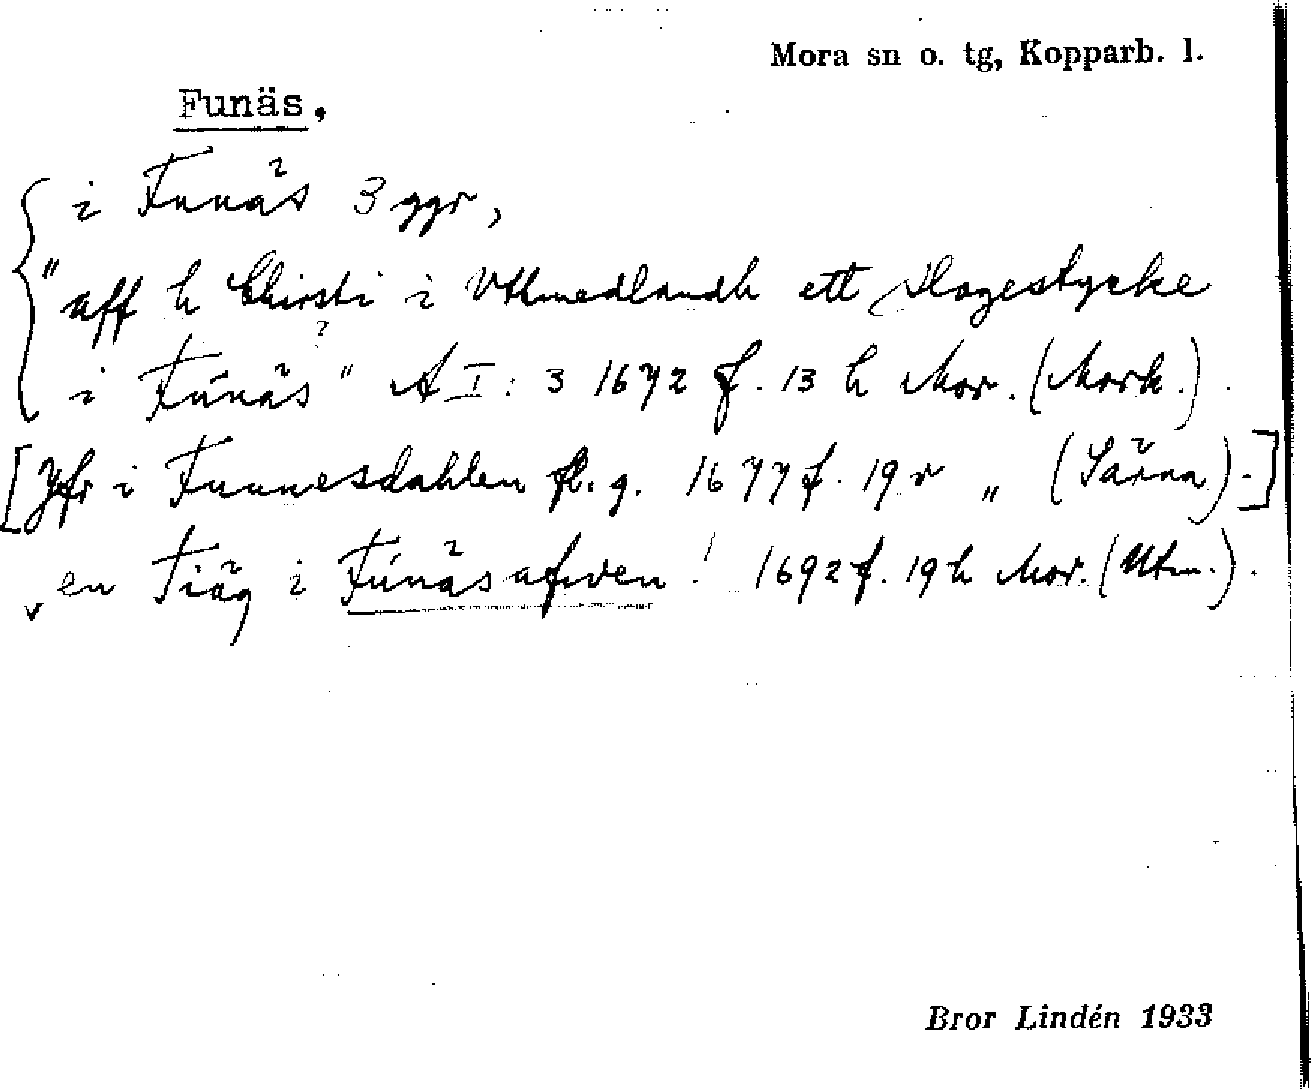 Mora sn o. tg, Kopparb. l.
Funäs,
i Funäs 3 ggr,
"aff h Chirsti i Vthmedlandh ett Slogestycke
i Fúnäs" A I: 3 1672 f. 13 h Mor. (Mork.).
[Jfr i Funnesdahlen fl. g. 1677 f. 19 v „ (Särna).]
en Tiäg i Fúnäsafwen! 1692 f. 19 h Mor. (Utm.).
Bror Lindén 1933